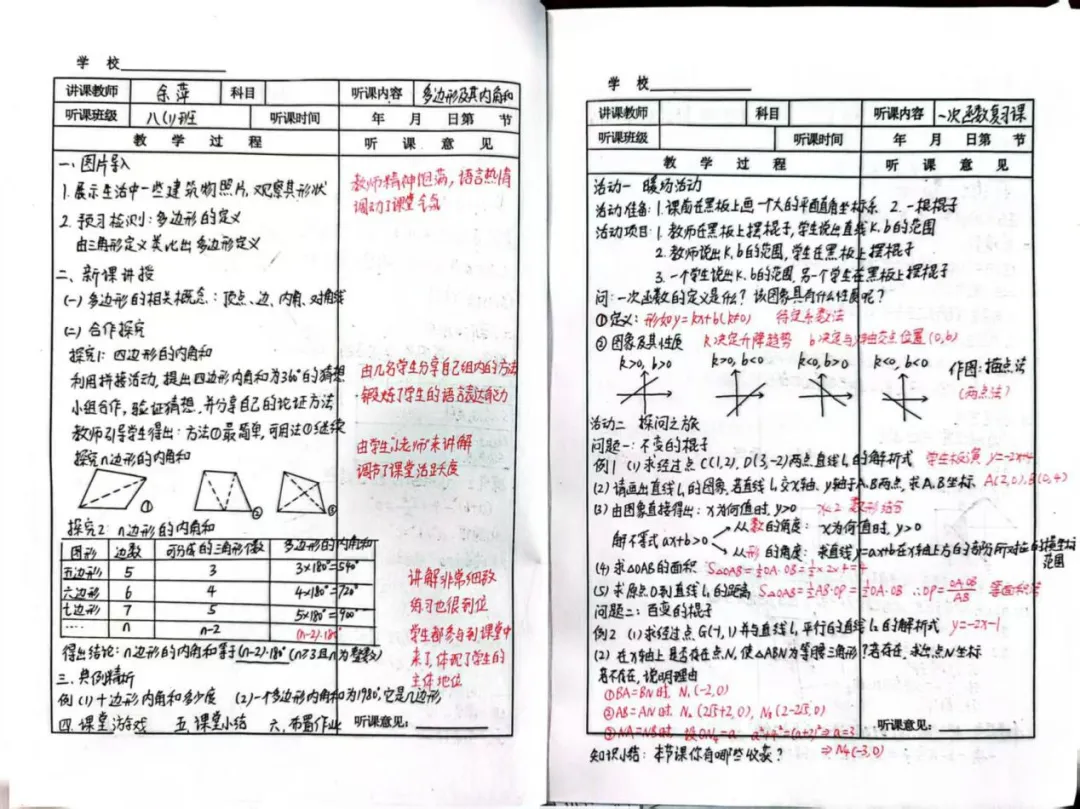 学 校
讲课教师 余萍 科目 听课内容 多边形及其内角和
听课班级 八(1)班 听课时间 年 月 日第 节
教 学 过 程 听 课 意 见
一、图片导入
1. 展示生活中一些建筑物照片,观察其形状
2. 预习检测:多边形的定义
由三角形定义类比出多边形定义
教师精神饱满,语言热情
调动了课堂气氛
二、新课讲授
(一) 多边形的相关概念:顶点、边、内角、对角线
(二) 合作探究
探究1: 四边形的内角和
利用拼接活动,提出四边形内角和为360°的猜想
小组合作,验证猜想,并分享自己的论证方法
教师引导学生得出:方法①最简单,可用法①继续
探究n边形的内角和
由几名学生分享自己组内的方法
锻炼了学生的语言表达能力
由学生"老师"来讲解
调节了课堂活跃度
① ② ③
探究2: n边形的内角和
图形 边数 可分成的三角形个数 多边形的内角和
五边形 5 3 3×180°=540°
六边形 6 4 4×180°=720°
七边形 7 5 5×180°=900°
…… n n-2 (n-2)·180°
得出结论: n边形的内角和等于(n-2)·180° (n≥3且n为整数)
讲解非常细致
练习也很到位
学生都参与到课堂中
来了,体现了学生的
主体地位
三、典例精析
例 (1) 十边形内角和多少度 (2) 一个多边形内角和为1980°,它是几边形
四、课堂游戏 五、课堂小结 六、布置作业 听课意见:
学 校
讲课教师 科目 听课内容 一次函数复习课
听课班级 听课时间 年 月 日第 节
教 学 过 程 听 课 意 见
活动一 暖场活动
活动准备: 1. 课前在黑板上画一个大的平面直角坐标系 2. 一根棍子
活动项目: 1. 教师在黑板上摆棍子,学生说出直线k、b的范围
2. 教师说出k、b的范围,学生在黑板上摆棍子
3. 一个学生说出k、b的范围,另一个学生在黑板上摆棍子
问: 一次函数的定义是什么? 该图象具有什么性质呢?
①定义: 形如y=kx+b(k≠0) 待定系数法
②图象及其性质 k决定升降趋势 b决定与y轴交点位置(0,b)
k>0, b>0 k>0, b<0 k<0, b>0 k<0, b<0 作图: 描点法
(两点法)
活动二 探问之旅
问题一: 不变的棍子
例1 (1) 求经过点C(1,2), D(3,-2)两点直线l₁的解析式 学生板演 y=-2x+4
(2) 请画出直线l₁的图象,若直线l₁交x轴、y轴于A、B两点,求A、B坐标 A(2,0), B(0,4)
(3) 由图象直接得出: x为何值时, y>0 x<2 数形结合
解不等式ax+b>0 从数的角度: x为何值时, y>0
从形的角度: 求直线y=ax+b在x轴上方的部分所对应的横坐标
范围
(4) 求△OAB的面积 S△OAB=½OA·OB=½×2×4=4
(5) 求原点O到直线l₁的距离 S△OAB=½AB·OP=½OA·OB ∴OP=OA·OB/AB 等面积法
问题二: 百变的棍子
例2 (1) 求经过点G(-1,1)并与直线l₁平行的直线l₂的解析式 y=-2x-1
(2) 在x轴上是否存在点N,使△ABN为等腰三角形?若存在,求出点N坐标
若不存在,说明理由
①BA=BN时 N₁(-2,0)
②AB=AN时 N₂(2√5+2,0), N₃(2-2√5,0) 听课意见:
③NA=NB时 设ON₄=a a²+4²=(a+2)²⇒a=3
⇒N4(-3,0)
知识小结: 本节课你有哪些收获?